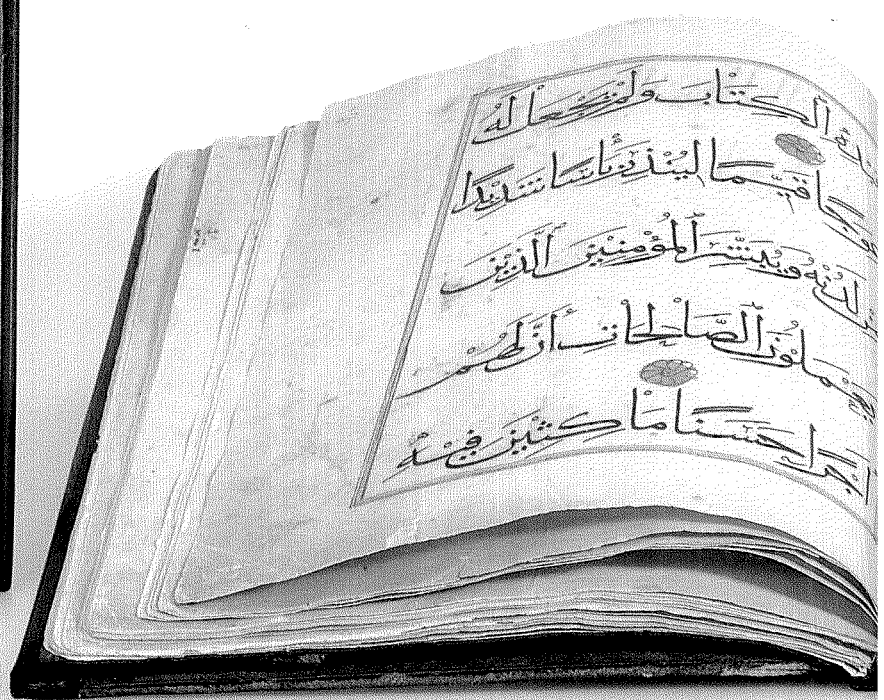 عبده الكتاب ولم يجعل له
عوجا قيما لينذر بأسا شديدا
من لدنه ويبشر المؤمنين الذين
يعملون الصالحات أن لهم
أجرا حسنا ماكثين فيه